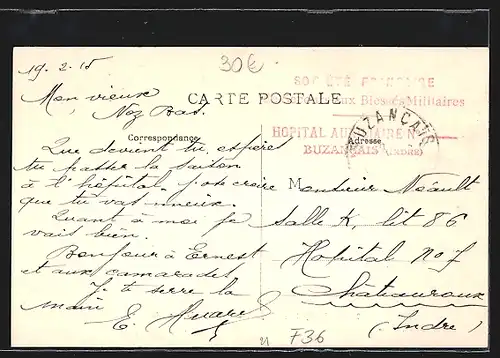 19.2.15
30€
SOCIÉTÉ FRANÇAISE
aux Blessés Militaires
HOPITAL AUXILIAIRE N
BUZANÇAIS (INDRE)
BUZANÇAIS
CARTE POSTALE
Correspondance
Adresse
Mon vieux
Que devient tu, espères
tu passer la saison
à l'hôpital. croire
que tu vas mieux.
Quant à moi je
vais bien.
Bonjour à Ernest
et aux camarades
Je te serre la
main
E. Huare
Monsieur Néault
Salle K, lit 86
Hopital No 7
Châteauroux
(Indre)
F36